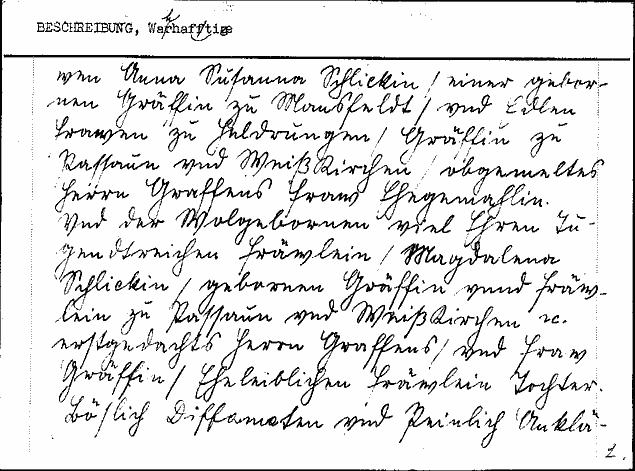 BESCHREIBUNG, Warhafftige
wen Anna Susanna Schlickin / einer gebor-
nen Gräffin zu Mansfeldt / vnd Edlen
frawen zu Heldrungen / Gräffin zu
Passaun vnd Weißkirchen / obgemeltes
Herrn Graffens fraw Ehegemahlin.
Vnd der Wolgebornen viel Ehren Tu-
gendtreichen fräwlein / Magdalena
Schlickin / gebornen Gräffin vnnd fräw-
lein zu Passaun vnd Weißkirchen ꝛc.
erstgedachts Herrn Graffens / vnd fraw
Gräffin / Eheleiblichen fräwlein Tochter.
Böslich Diffamaten vnd Peinlich Anklä-
2.